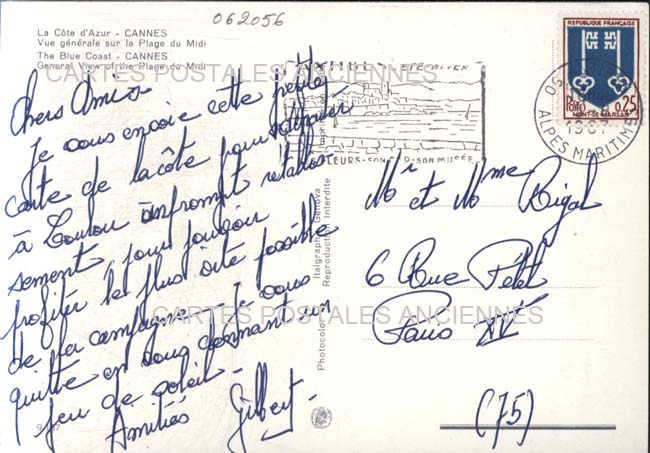 062056
La Côte d'Azur - CANNES
Vue générale sur la Plage du Midi
The Blue Coast - CANNES
General View of the Plage du Midi
CARTES POSTALES ANCIENNES
Chers Amis -
Je vous envoie cette petite
carte de la côte pour
à Toulon un prompt rétablis-
sement pour pouvoir
profiter le plus vite possible
de la campagne - Je vous
quitte en vous donnant un
peu de soleil -
Amitiés Gilbert -
ÉTÉ-HIVER
FLEURS-SON-SON MUSÉE
REPUBLIQUE FRANÇAISE
POSTES 0,25
MONT-DE-MARSAN
1967
ALPES MARITIMES
Mr et Mme Rigal
6 Rue Pétel
Paris XVe
(75)
CARTES POSTALES ANCIENNES
Photocolor Italgraph - Genova
Reproduction Interdite